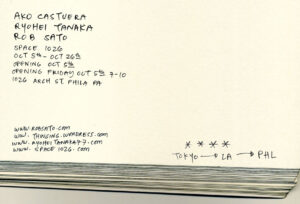 AKO CASTUERA
RYOHEI TANAKA
ROB SATO
SPACE 1026
OCT 5TH - OCT 26TH
OPENING OCT 5TH
OPENING FRIDAY OCT 5TH 7-10
1026 ARCH ST. PHILA PA
WWW.ROBSATO.COM
WWW.AYOHEITANAKA77.COM
WWW.SPACE1026.COM
****
TOKYO → LA → PHL